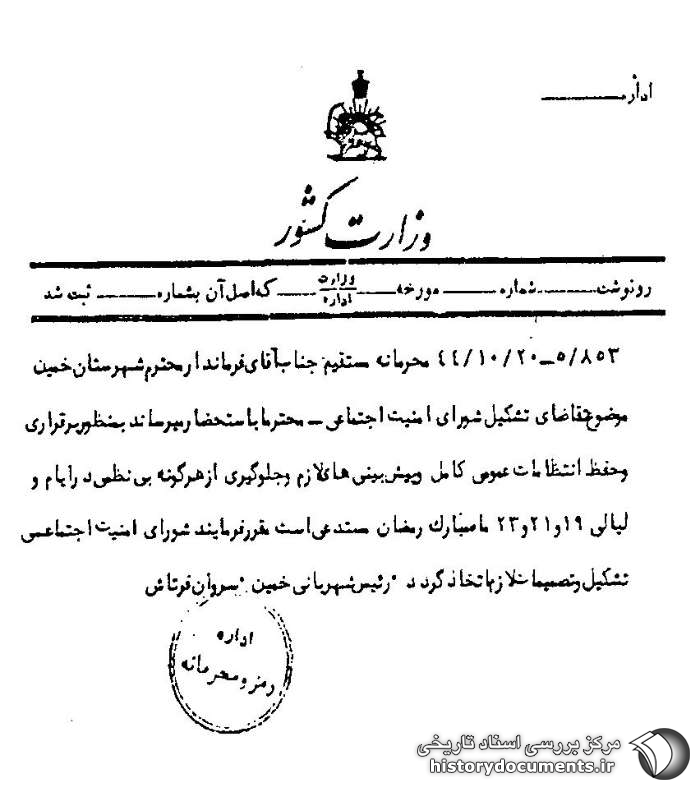 اداره
وزارت کشور
رونوشت شماره مورخه وزارت اداره که اصل آن بشماره ثبت شد
۵/۸۵۳ــ۴۴/۱۰/۲۰ محرمانه مستقیم جناب آقای فرماندار محترم شهرستان خمین
موضوع تقاضای تشکیل شورای امنیت اجتماعی ــ محترما باستحضار میرساند بمنظور برقراری
و حفظ انتظامات عمومی کامل و پیش بینی های لازم و جلوگیری از هرگونه بی نظمی در ایام و
لیالی ۱۹ و ۲۱ و ۲۳ ماه مبارک رمضان مستدعی است مقرر فرمایند شورای امنیت اجتماعی
تشکیل و تصمیمات لازم اتخاذ گردد ۰ رئیس شهربانی خمین ۰ سروان فرتاش
اداره
رمز و محرمانه
مرکز بررسی اسناد تاریخی
historydocuments.ir